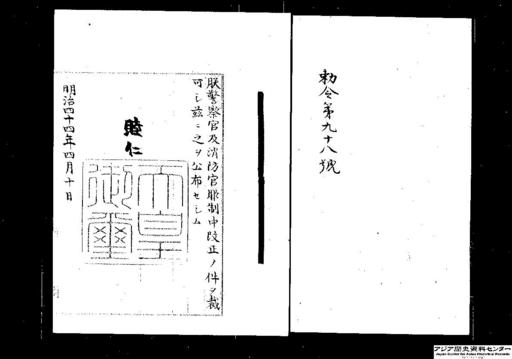 勅令第九十八號
朕警察官及消防官服制中改正ノ件ヲ裁
可シ茲ニ之ヲ公布セシム
睦仁
天皇
御璽
明治四十四年四月十日
アジア歴史資料センター
Japan Center for Asian Historical Records